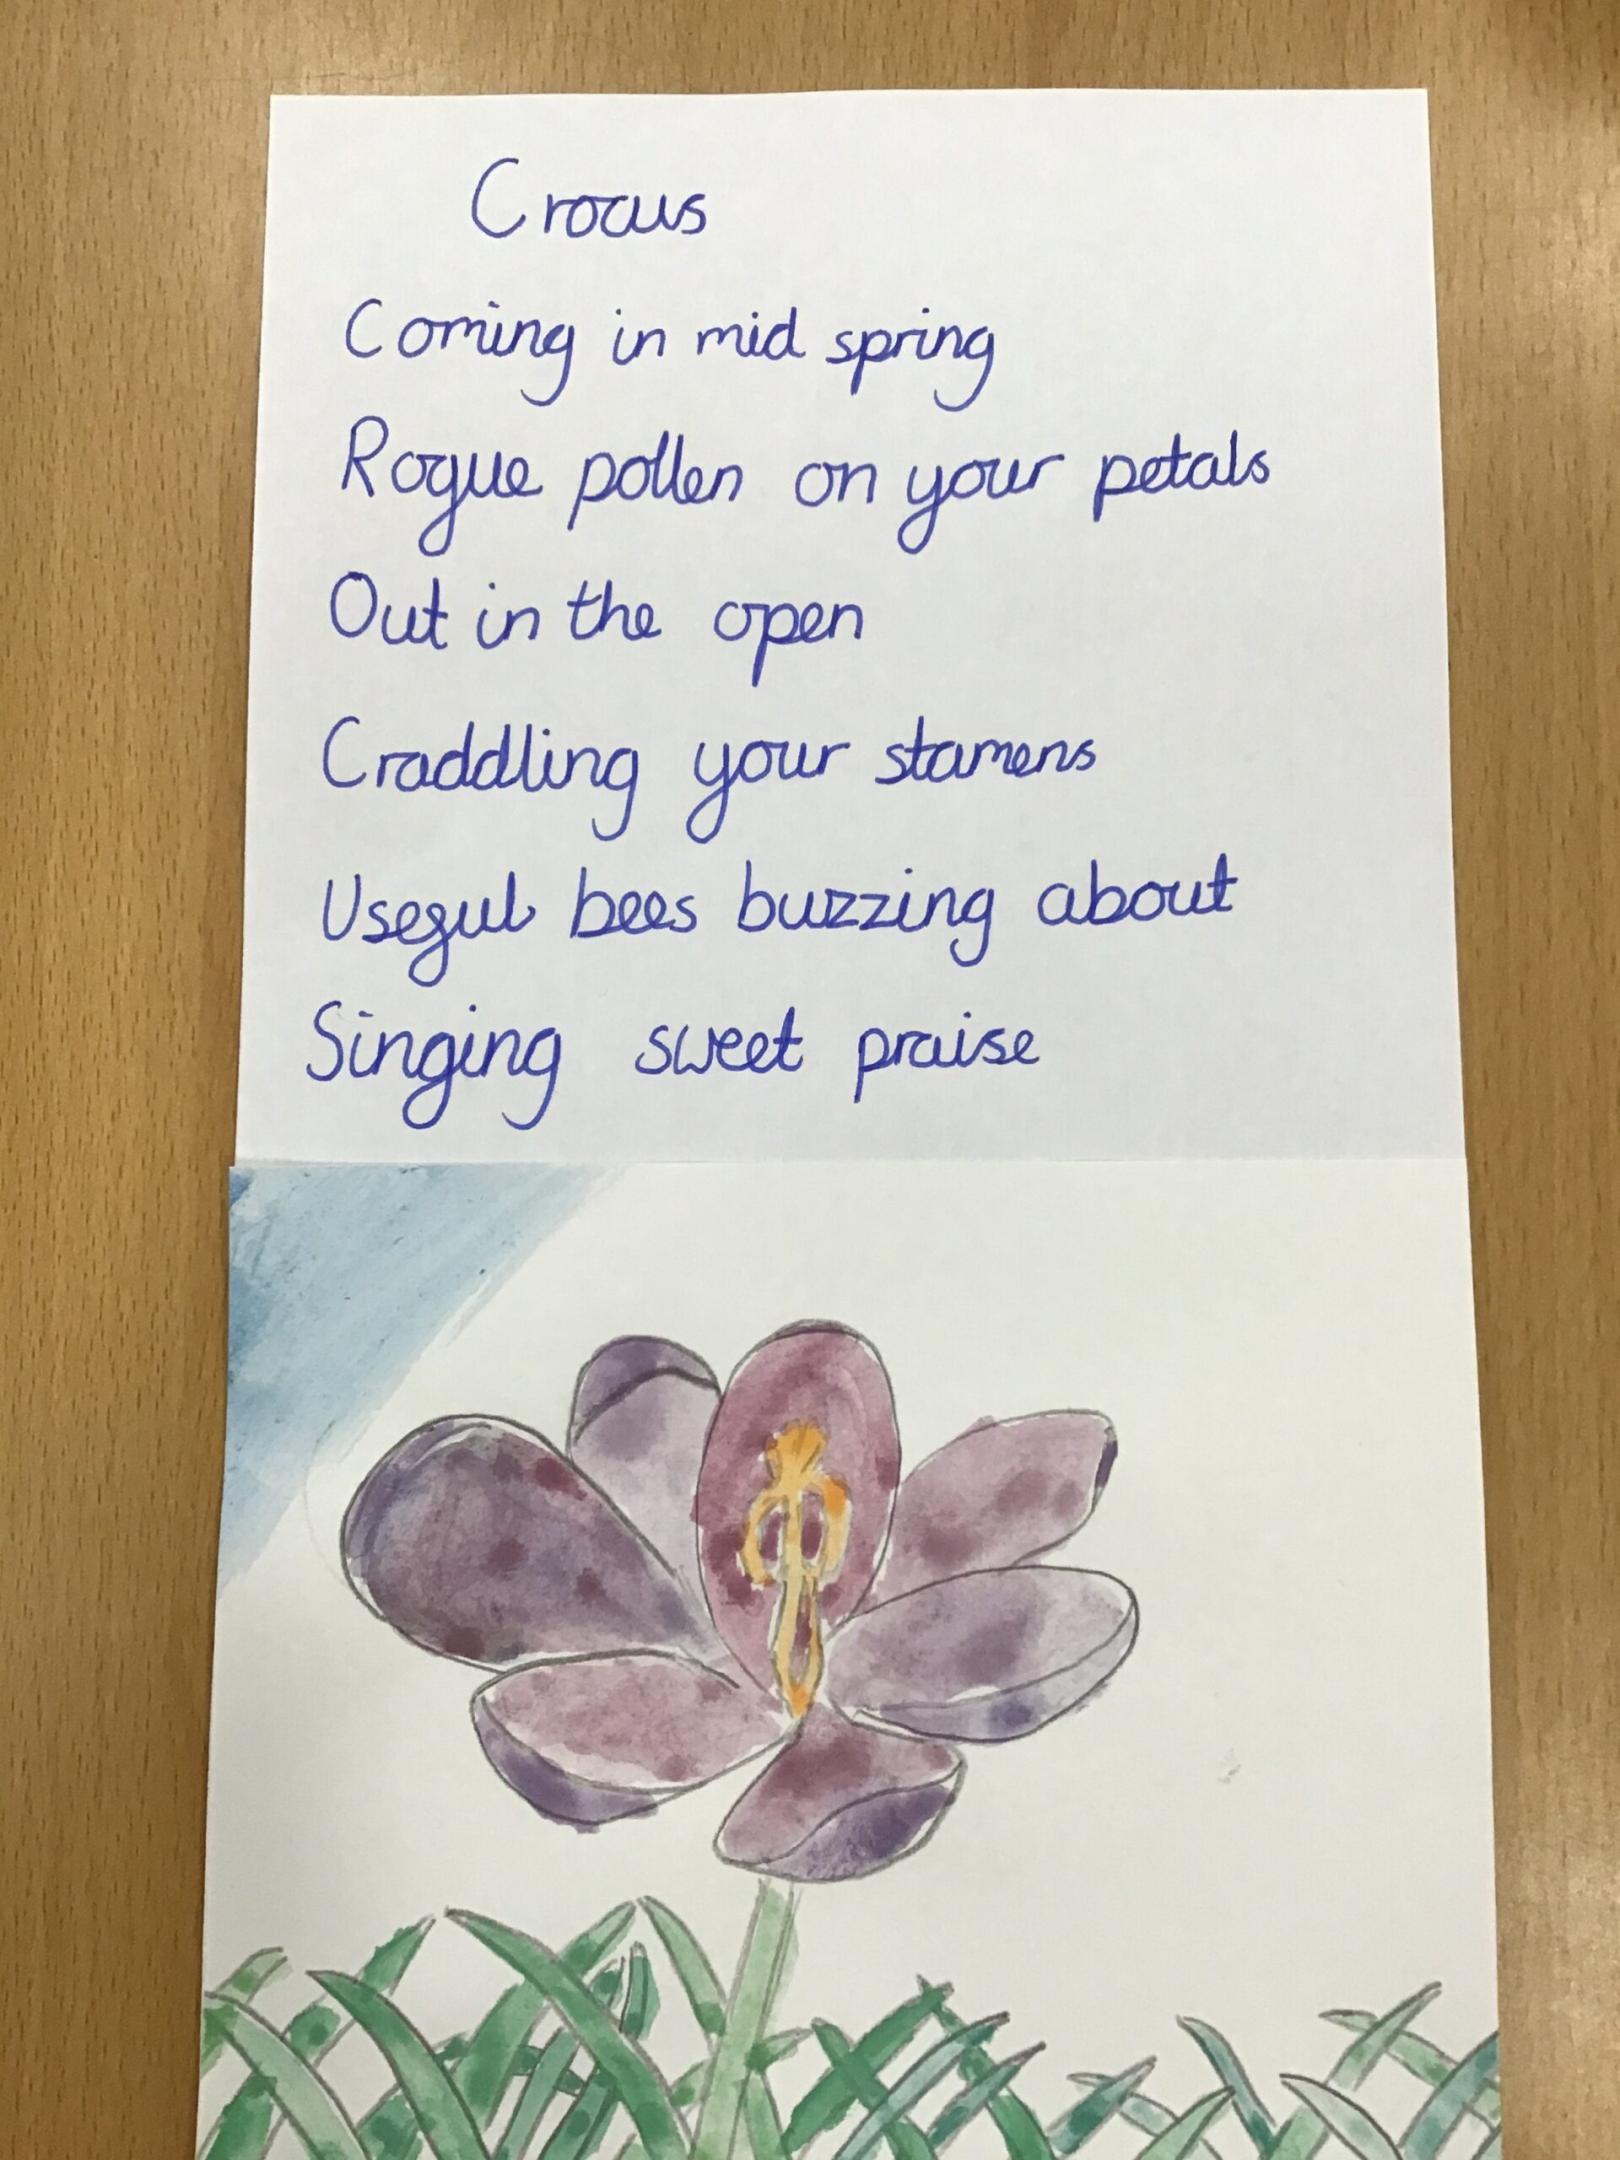 Crocus
Coming in mid spring
Rogue pollen on your petals
Out in the open
Craddling your stamens
Useful bees buzzing about
Singing sweet praise